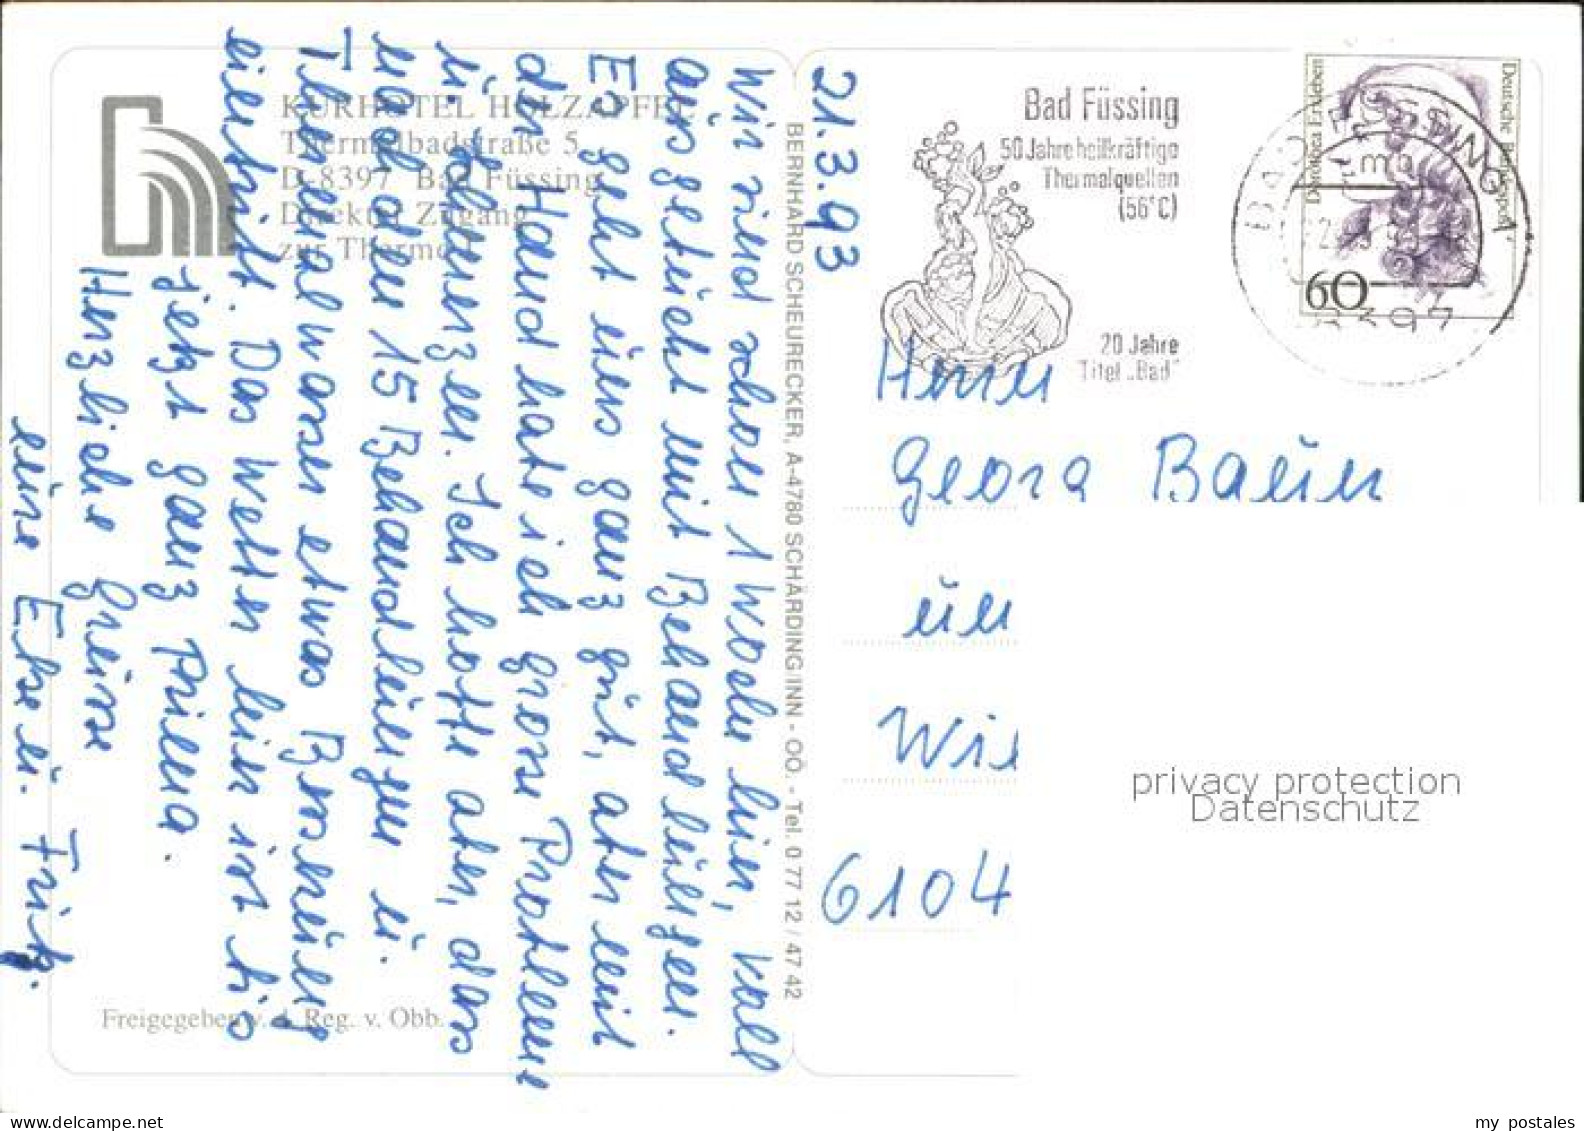 KURHOTEL HOLZAPFEL
Thermalbadstraße 5
D-8397 Bad Füssing
Direkter Zugang
zur Therme
Freigegeben v. d. Reg. v. Obb.
21.3.93
Wir sind schon 1 Woche hier, voll
ausgebucht mit Behandlungen.
Es geht uns ganz gut, aber mit
der Hand habe ich grosse Probleme
u. Schmerzen. Ich hoffe aber, dass
nach den 15 Behandlungen u.
Thermalwasser etwas Besserung
eintritt. Das Wetter hier ist bis
jetzt ganz prima.
Herzliche Grüsse
eure Else u. Fritz.
BERNHARD SCHEURECKER, A-4780 SCHÄRDING/INN - OÖ. - Tel. 0 77 12 / 47 42
Bad Füssing
50 Jahre heilkräftige
Thermalquellen
(56°C)
20 Jahre
Titel „Bad"
BAD FÜSSING 1
mb
8397
Dorothea Erxleben
Deutsche Bundespost
60
Herrn
Georg Bauer
un
Wi
6104
privacy protection
Datenschutz
my postales